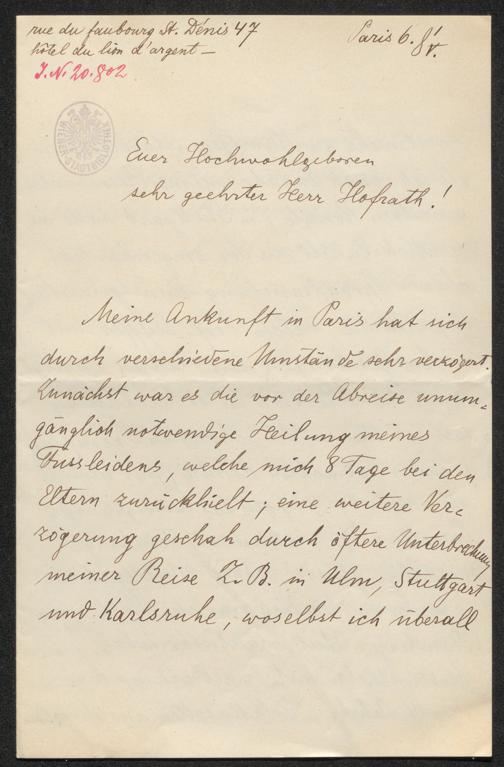 rue du faubourg St. Dénis 47
hôtel du lion d'argent —
Paris 6.
I. N. 20.802
Euer Hochwohlgeboren
sehr geehrter Herr Hofrath!
Meine Ankunft in Paris hat sich
durch verschiedene Umstände sehr verzögert.
Zunächst war es die vor der Abreise unum=
gänglich notwendige Heilung meines
Fussleidens, welche mich 8 Tage bei den
Eltern zurückhielt; eine weitere Ver=
zögerung geschah durch öftere Unterbrechung
meiner Reise Z. B. in Ulm, Stuttgart
und Karlsruhe, woselbst ich überall